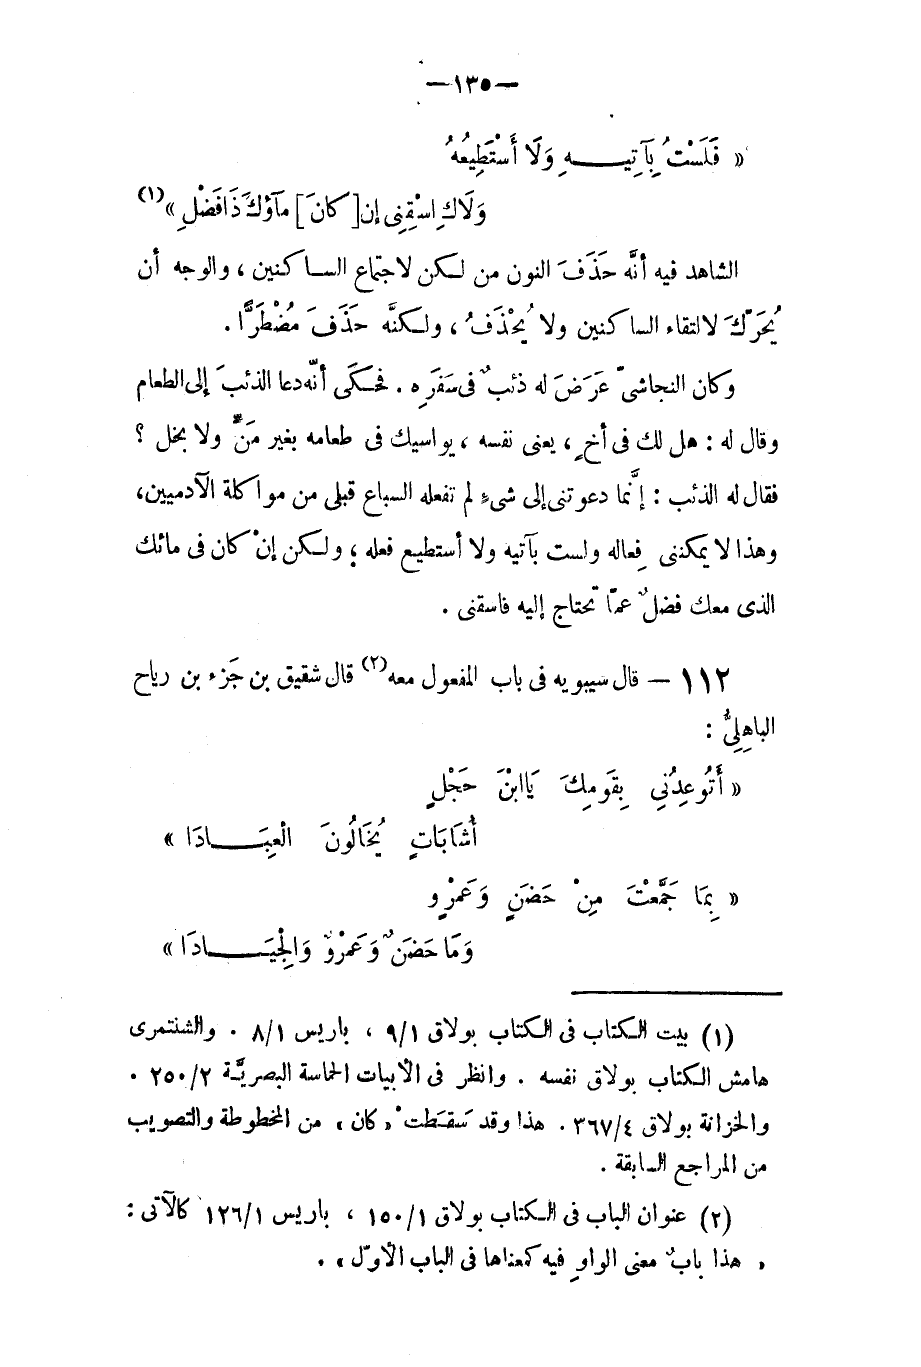 — ١٣٥ —
« فَلَسْتُ بِآتِيـــهِ وَلَا أَسْتَطِيعُهُ
وَلَاكِ اسْقِنِى إن [ كانَ ] مَآؤُكَ ذَا فَضْلِ » (١)
الشاهد فيه أنَّه حَذَفَ النون من لكن لاجتماع الساكنين ، والوجه أن
يُحَرِّكَ لالتقاء الساكنين ولا يُحْذَفُ ، ولكنَّه حَذَفَ مُضْطَرًّا .
وكان النجاشىّ عَرَضَ له ذئبٌ فى سَفَرِه . فحكَى أنّه دعا الذئبَ إلى الطعام
وقال له : هل لك فى أخٍ ، يعنى نفسه ، يواسيك فى طعامه بغير مَنٍّ ولا بخل ؟
فقال له الذئب : إنَّما دعوتنى إلى شىءٍ لم تفعله السباع قبلى من مواكلة الآدميين ،
وهذا لا يمكننى فِعاله ولست بآتيه ولا أستطيع فعله ؛ ولكن إنْ كان فى مائك
الذى معك فضلٌ عمّا تحتاج إليه فاسقنى .
١١٢ — قال سيبويه فى باب المفعول معه (٢) قال شقيق بن جَزء بن رياح
الباهِلِىُّ :
« أَتُوعِدُنِي بِقَومِكَ يَاابْنَ حَجْلٍ
أُشَابَاتٍ يُخَالُونَ الْعِبَـــادَا »
« بِمَا جَمَّعْتَ مِنْ حَضَنٍ وَعَمْرٍو
وَمَا حَضَنٌ وَعَمْرٌو وَالْجِيَـــادَا »
(١) بيت الكتاب فى الكتاب بولاق ٩/١ ، باريس ٨/١ . والشنتمرى
هامش الكتاب بولاق نفسه . وانظر فى الأبيات الحماسة البصريَّة ٢٥٠/٢ .
والخزانة بولاق ٣٦٧/٤ . هذا وقد سَقَطَتْ « كان » من المخطوطة والتصويب
من المراجع السابقة .
(٢) عنوان الباب فى الكتاب بولاق ١٥٠/١ ، باريس ١٢٦/١ كالآتى :
« هذا بابٌ معنى الواوِ فيه كمعناها فى الباب الأوّل » .